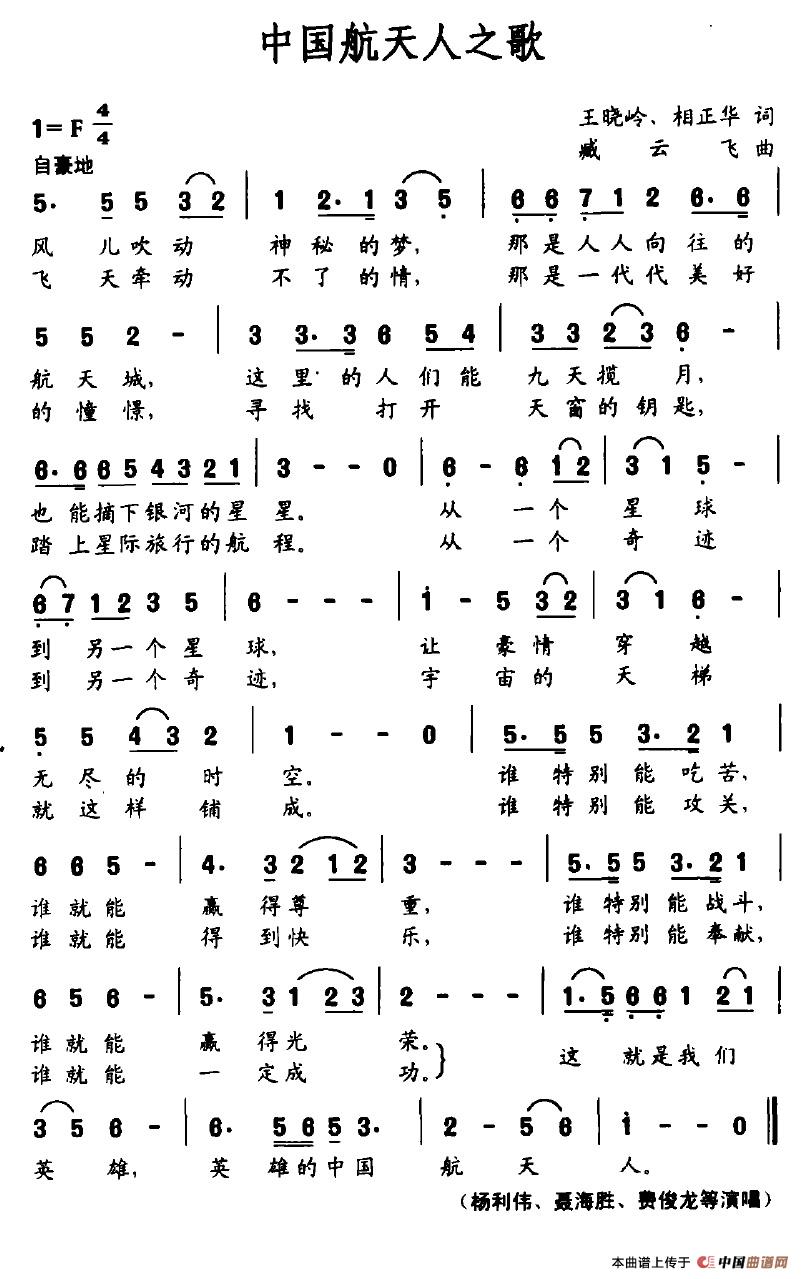 中国航天人之歌
1=F 4/4
王晓岭、相正华 词
自豪地
臧云飞曲
5· 5 5 3 2 | 1 2· 1 3 5 | 6 6 7 1 2 6· 6 |
风儿吹动 神秘的梦, 那是人人向往的
飞天牵动 不了的情, 那是一代代美好
5 5 2 - | 3 3· 3 6 5 4 | 3 3 2 3 6 - |
航天城, 这里的人们能 九天揽月,
的憧憬, 寻找打开 天窗的钥匙,
6· 6 6 5 4 3 2 1 | 3 - - 0 | 6 - 6 1 2 | 3 1 5 - |
也能摘下银河的星星。 从一个星球
踏上星际旅行的航程。 从一个奇迹
6 7 1 2 3 5 | 6 - - - | 1 - 5 3 2 | 3 1 6 - |
到另一个星球, 让豪情穿越
到另一个奇迹, 宇宙的天梯
5 5 4 3 2 | 1 - - 0 | 5· 5 5 3· 2 1 |
无尽的时空。 谁特别能吃苦,
就这样铺成。 谁特别能攻关,
6 6 5 - | 4· 3 2 1 2 | 3 - - - | 5· 5 5 3· 2 1 |
谁就能 赢得尊重, 谁特别能战斗,
谁就能 得到快乐, 谁特别能奉献,
6 5 6 - | 5· 3 1 2 3 | 2 - - - | 1· 5 6 6 1 2 1 |
谁就能 赢得光荣。 这就是我们
谁就能 一定成功。
3 5 6 - | 6· 5 6 5 3· | 2 - 5 6 | 1 - - 0 ‖
英雄, 英雄的中国 航天人。
(杨利伟、聂海胜、费俊龙等演唱)
本曲谱上传于 中国曲谱网